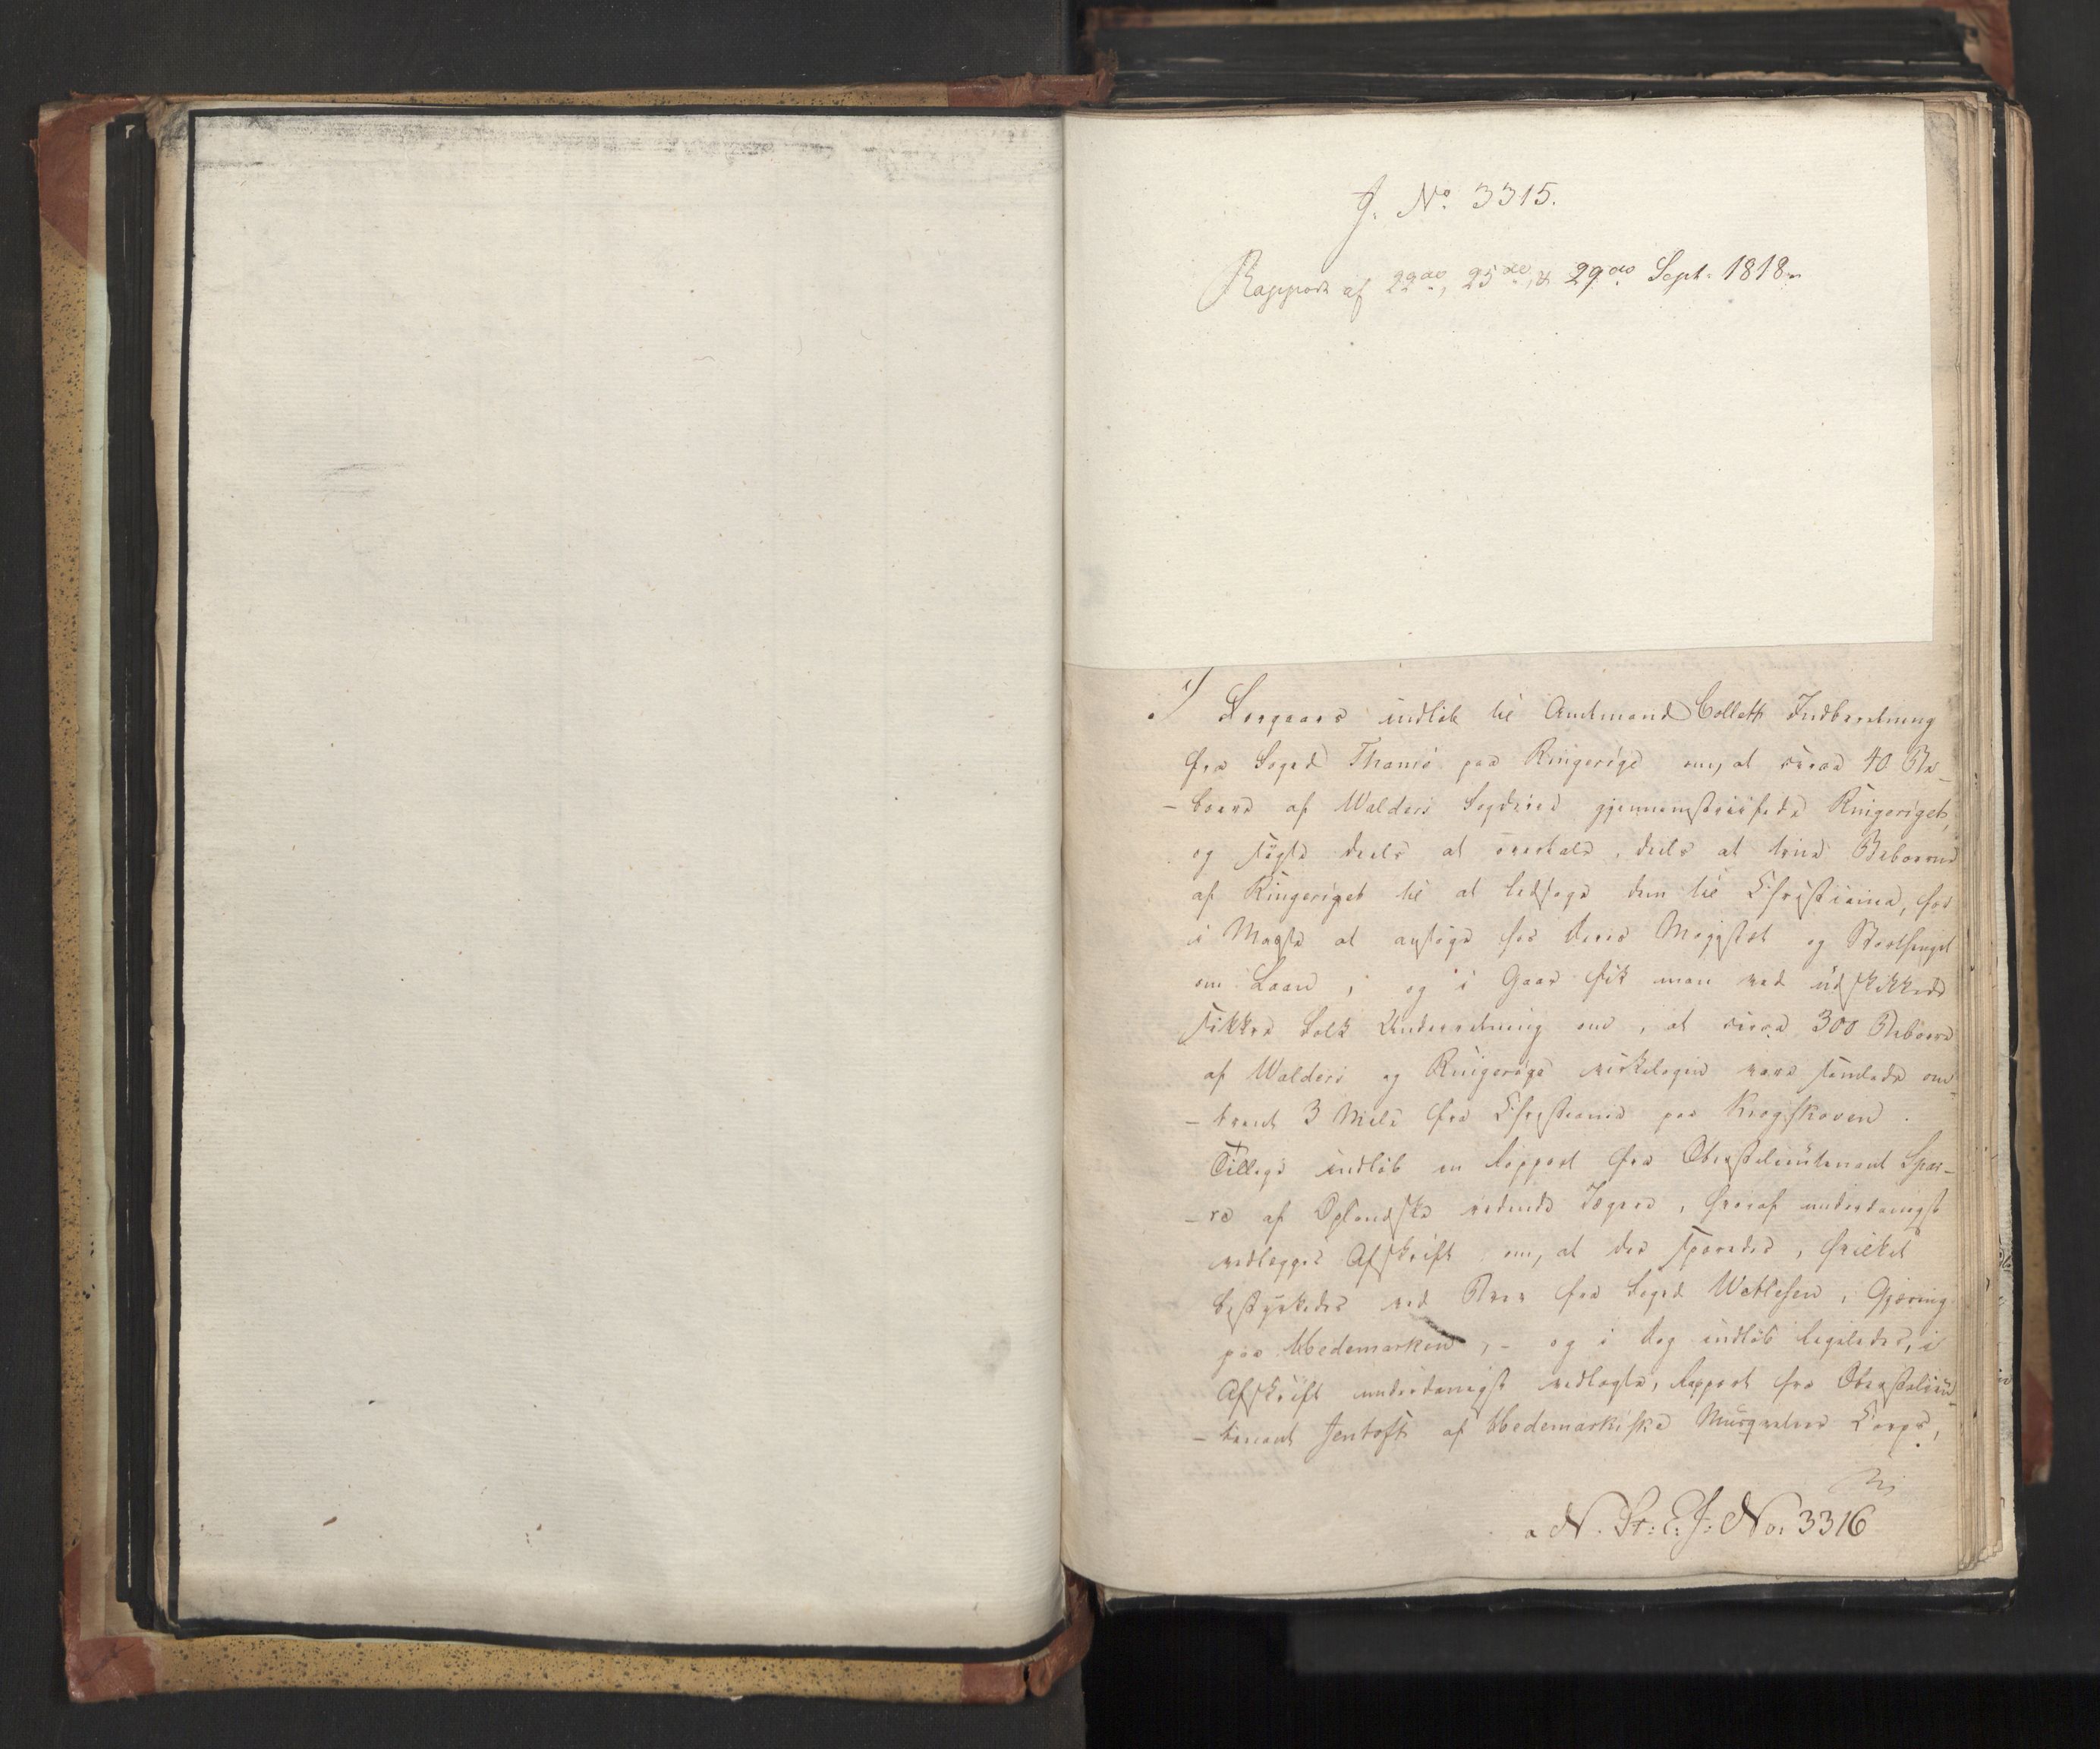 J. No. 3315.
Rapport af 22de, 25de, & 29de Sept. 1818.
1/ Forgaars indløb til Amtmand Collett Indberetning
fra Foged Thams paa Ringerige om, at circa 40 Be-
-boere af Walders Fogderie gjennemstreifede Ringeriget,
og søgte deels at overtale, deels at true Beboerne
af Ringeriget til at ledsage dem til Christiania, for
i Masse at ansøge hos Deres Majestæt og Storthinget
om Laan, og i Gaar fik man ved udskikkede
sikkre Folk Underretning om, at circa 300 Beboere
af Walders og Ringerige virkeligen vare samlede om-
-trent 3 Mile fra Christiania paa Krogskoven.
Tillige indløb en Rapport fra Oberstlieutenant Spar-
-re af Oplandske ridende Jægere, hvoraf underdanigst
vedlægges Afskrift om, at der sporedes, hvilket
bestyrkedes ved Brev fra Foged Wetlesen, Gjæring
paa Hedemarken, - og i Dag indløb ligeledes, i
Afskrift underdanigst vedlagte, Rapport fra Oberstlieu-
-tenant Jentoft af Hedemarkiske Musqveteer Corps,
N. St: E. J: No. 3316